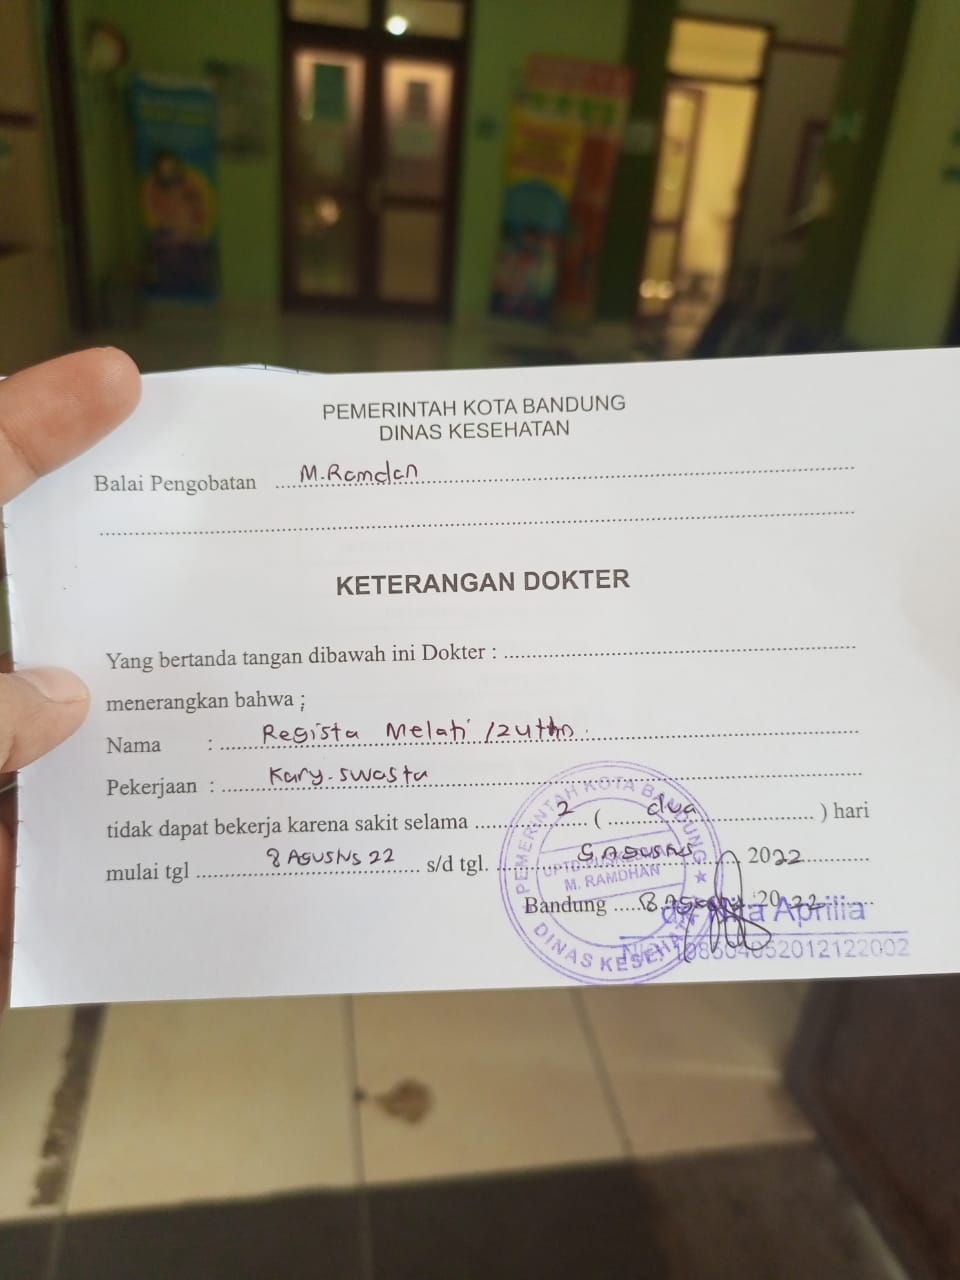 PEMERINTAH KOTA BANDUNG
DINAS KESEHATAN
Balai Pengobatan M.Ramdan
KETERANGAN DOKTER
Yang bertanda tangan dibawah ini Dokter :
menerangkan bahwa ;
Nama : Regista Melati /24thn
Pekerjaan : Kary. swasta
tidak dapat bekerja karena sakit selama 2 ( dua ) hari
mulai tgl 8 Agustus 22 s/d tgl. 9 Agustus 2022
Bandung 8 2022
PEMERINTAH KOTA BANDUNG
M. RAMDHAN
DINAS KESEHATAN
Aprilia